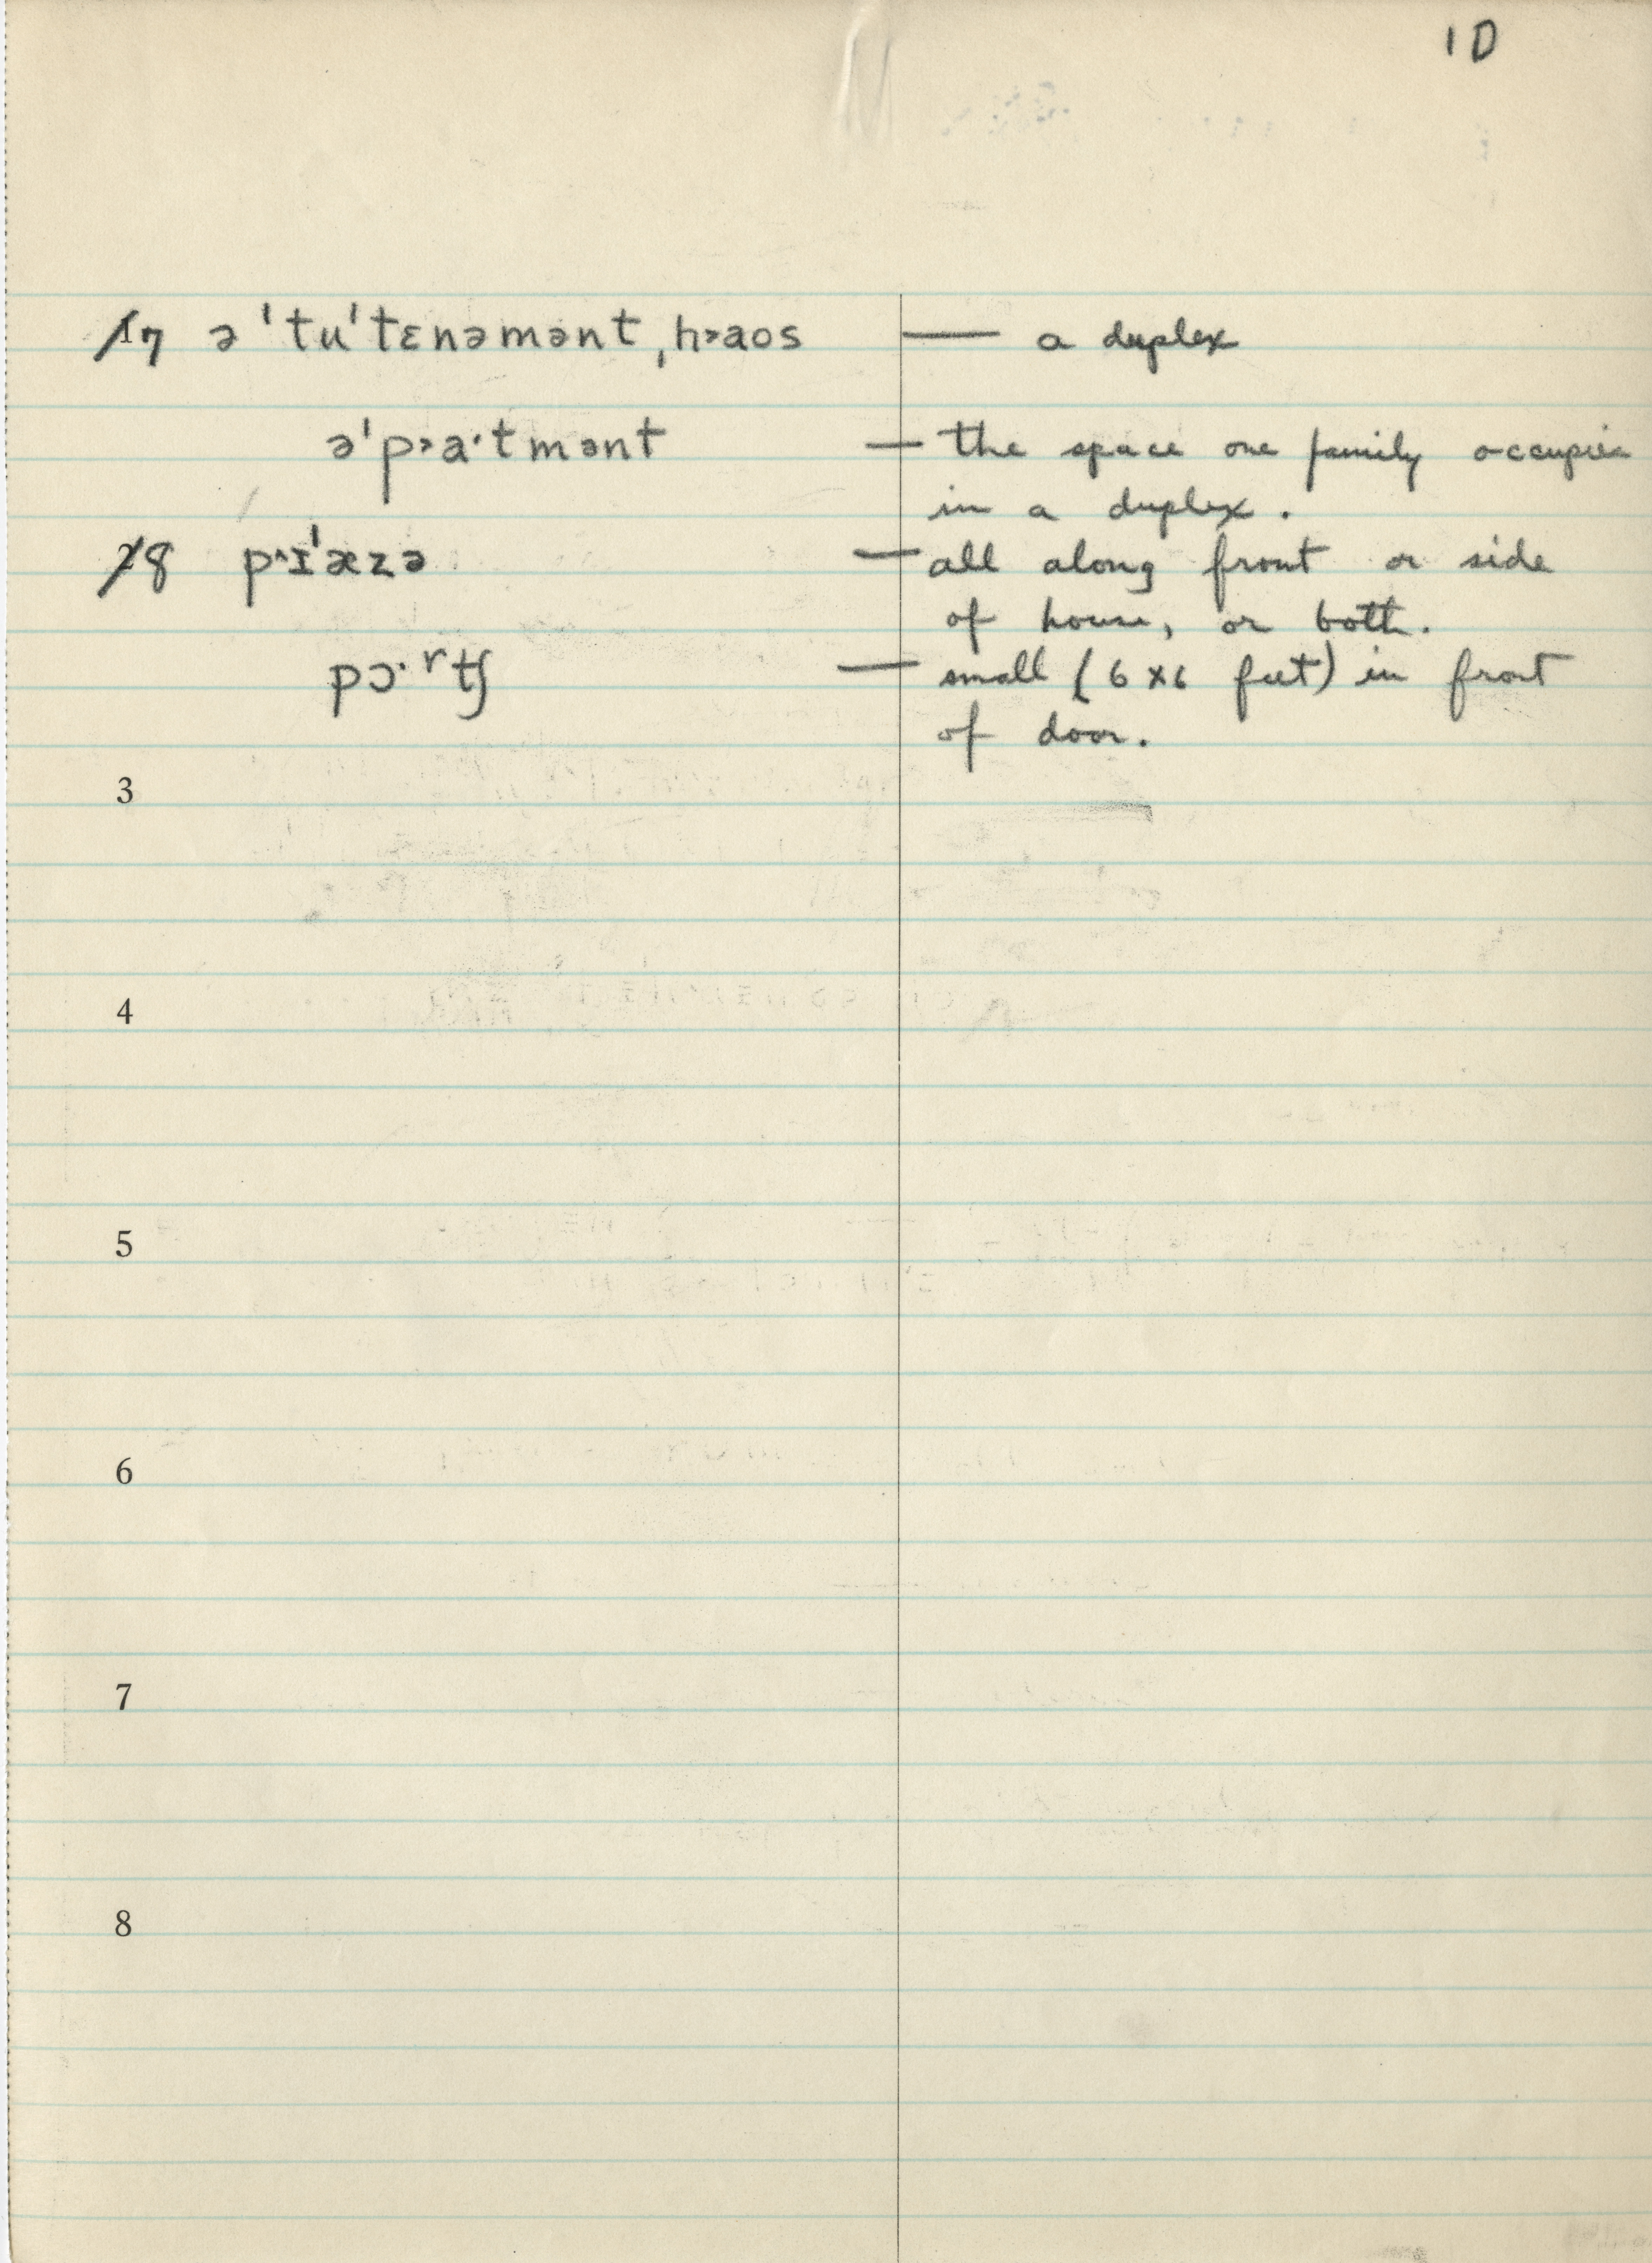 1D
17 ə ˈtuˈtɛnəmənt ˌh˃aos — a duplex
əˈp˃a·tmənt — the space one family occupies
in a duplex.
28 p˞ɪˈæzə — all along front or side
of house, or both.
pɔ·ʳtʃ — small (6 x 6 feet) in front
of door.
3
4
5
6
7
8